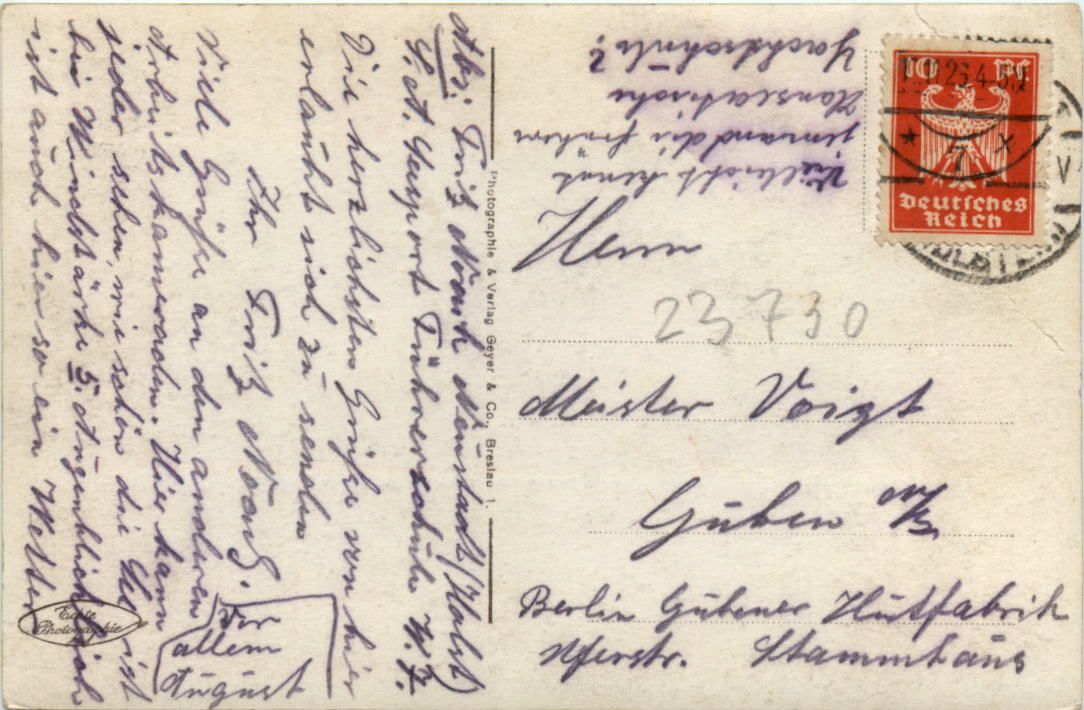 Abs: Fritz Noack Neustadt/Holst
S.A. Seesport Führerschule W.7.
Die herzlichsten Grüße von hier
erlaubt sich zu senden
Ihr Fritz Noack.
Viele Grüße an den anderen
Arbeitskameraden. Hier kann
jeder sehen, wie schön die See ist
bei Windstärke 5. Augenblicklich
ist auch hier so ein Wetter
Vor
allem
August
Vielleicht kennt
jemand die frühere
Hanseatische
Yachtschule?
Photographie & Verlag Geyer & Co., Breslau 1.
Echte
Photographie
10 Pf
Deutsches
Reich
Herrn
23730
Meister Voigt
Guben N/L.
Berlin Gubener Hutfabrik
Uferstr. Stammhaus